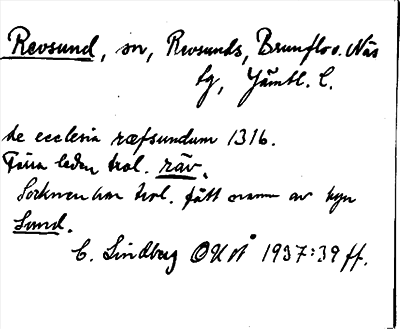 Revsund, sn, Revsunds, Brunflo o. Näs
tg, Jämtl. l.
de ecclesia ræfsundum 1316.
Förra leden trol. räv.
Socknen har trol. fått namn av byn
Sund.
C. Lindberg OKNÅ 1937:39 ff.